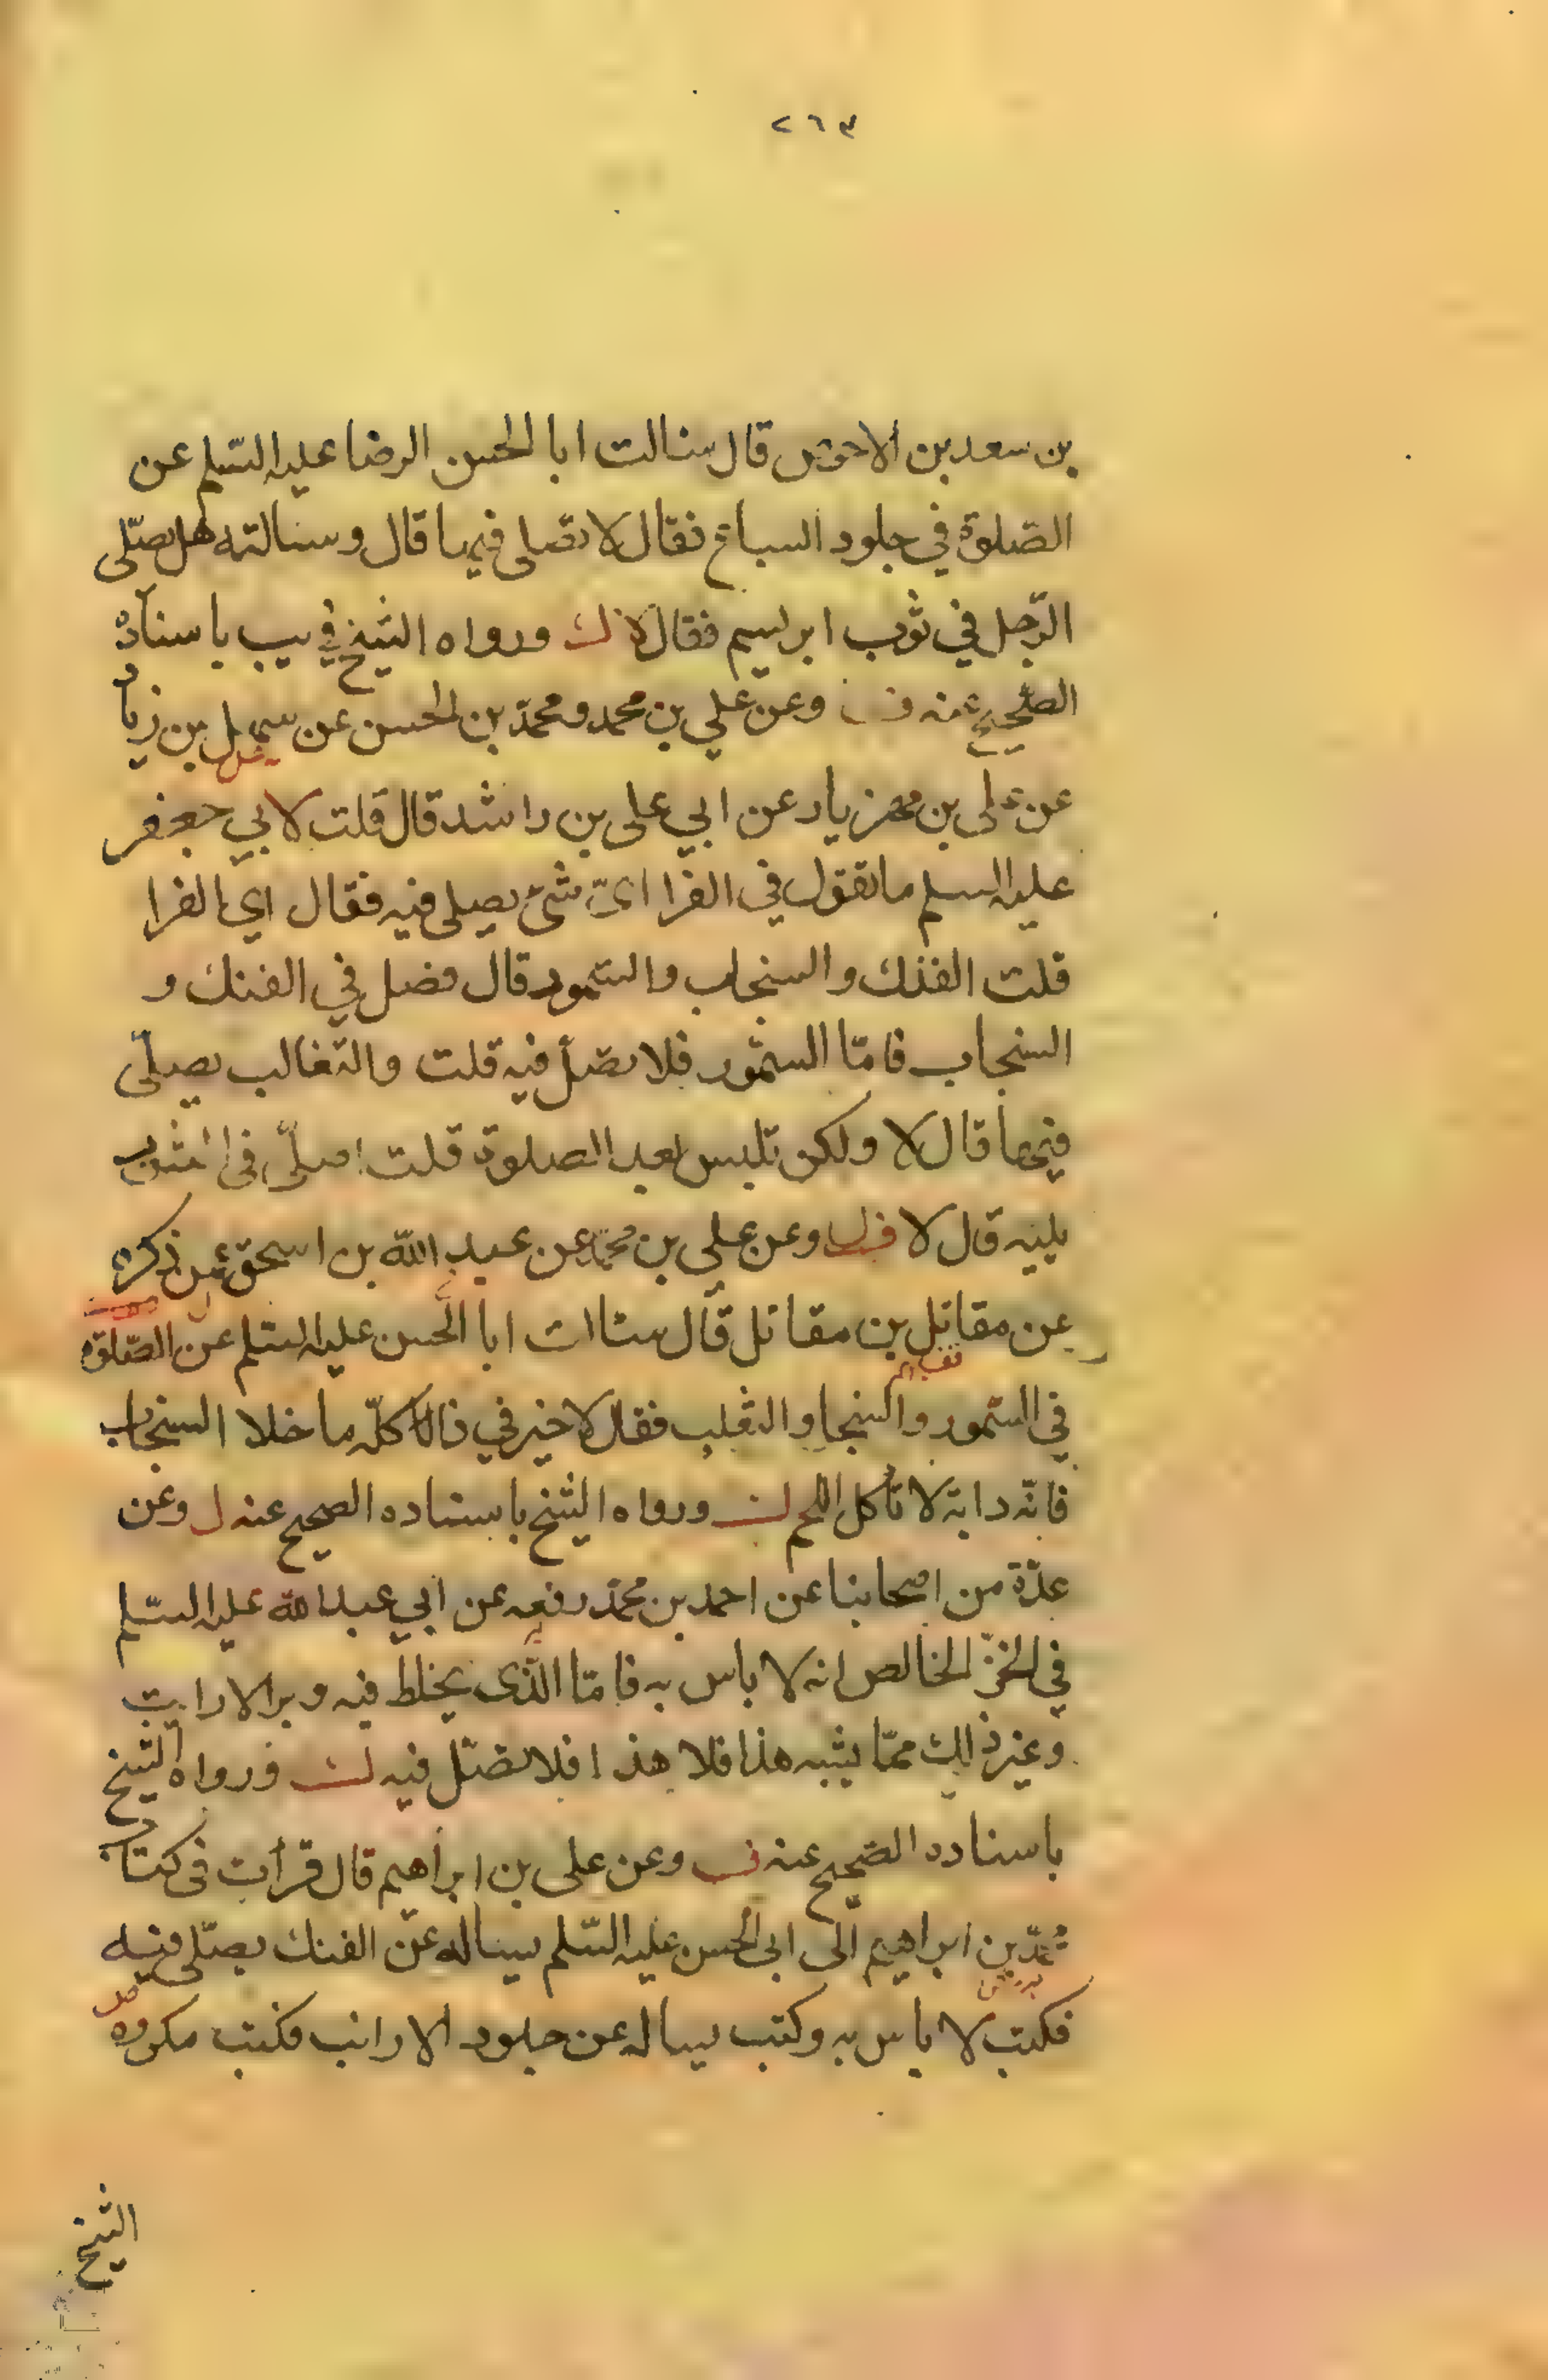 ٢٦٣
بن سعد بن الاحوص قال سئالت ابا الحسن الرضا عليه السّلم عن
الصّلوة في جلود السباع فقال لا تصلى فيها قال وسئالته هل يصلّى
الرّجل في ثوب ابريسم فقال لا ورواه الشيخ في يب باسناده
الصّحيح عنه وعن علي بن محمد ومحمّد بن الحسن عن سهل بن زياد
عن على بن مهزيار عن ابي على بن راشد قال قلت لابي جعفر
عليه السلم ما تقول في الفرا اىّ شئ يصلى فيه فقال اي الفرا
قلت الفنك والسنجاب والسّمور قال فصل في الفنك و
السنجاب فامّا السمّور فلا تصلّ فيه قلت والثعالب يصلّى
فيها قال لا ولكن تلبس بعد الصلوة قلت اصلّى فى الثوب
يليه قال لا وعن علي بن محمّد عن عبد الله بن اسحق عمن ذكره
عن مقاتل بن مقاتل قال سئالت ابا الحسن عليه السّلم عن الصّلوة
في السّمور والسنجاب والثعلب فقال لا خير في ذالك كلّه ما خلا السنجاب
فانّه دابة لا تأكل اللحم ورواه الشيخ باسناده الصحيح عنه وعن
عدّة من اصحابنا عن احمد بن محمّد رفعه عن ابي عبد الله عليه السّلم
في الخزّ الخالص انه لا باس به فامّا الذّى يخلط فيه وبر الارانب
وغير ذلك ممّا يشبه هذا فلا هذا فلا تصلّ فيه ورواه الشيخ
باسناده الصّحيح عنه وعن على بن ابراهيم قال قرأت فى كتاب
محمّد بن ابراهيم الى ابى الحسن عليه السّلم يساله عن الفنك يصلّى فيه
فكتب لا باس به وكتب يساله عن جلود الارانب فكتب مكروه
الشيخ